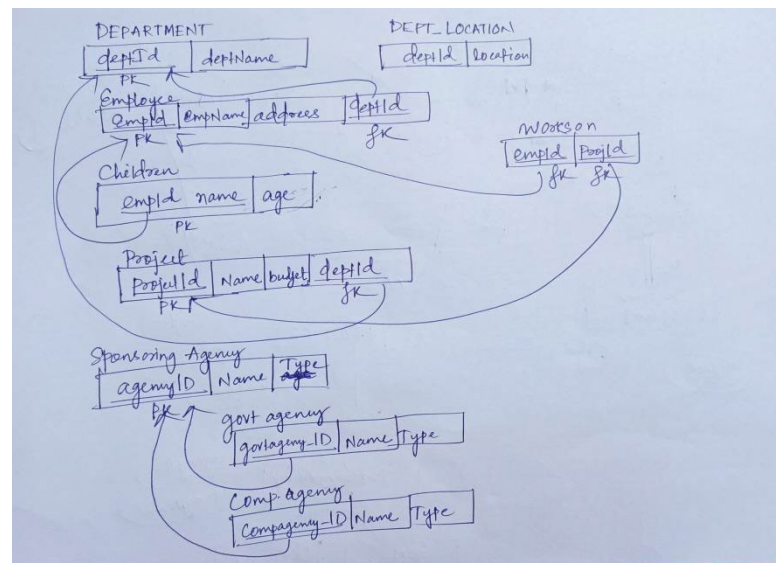 DEPARTMENT
deptId deptName
PK
DEPT_LOCATION
deptId location
Employee
empId empName address deptId
PK fk
Workson
empId ProjId
fk fk
Children
empId name age
PK
Project
ProjectId Name budget deptId
PK fk
Sponsoring Agency
agencyID Name Type
PK
govt agency
govtagency_ID Name Type
Comp. agency
Compagency_ID Name Type